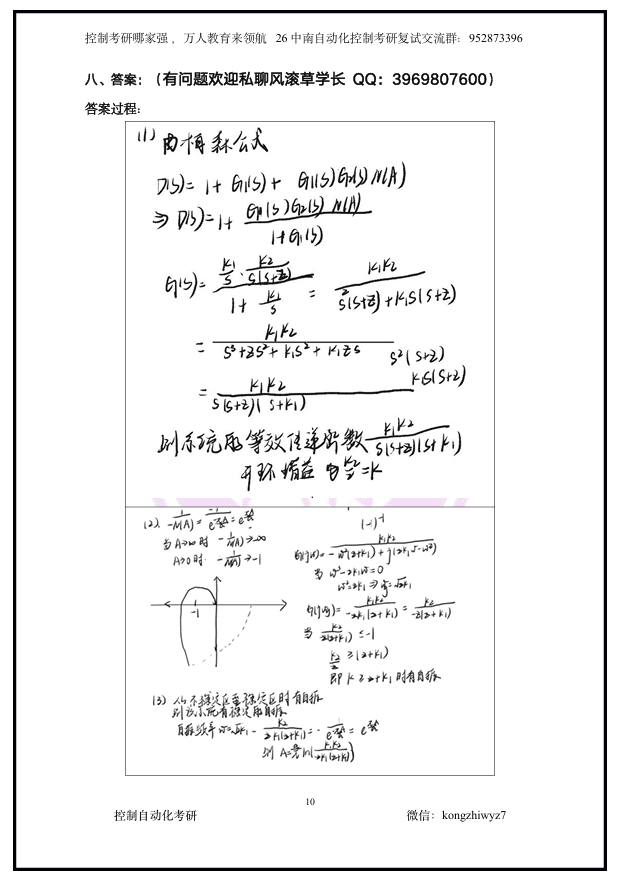 控制考研哪家强，万人教育来领航 26中南自动化控制考研复试交流群：952873396
八、答案：（有问题欢迎私聊风滚草学长 QQ：3969807600）
答案过程：
(1) 由梅森公式
D(s)= 1+ G1(s)+ G1(s)G2(s)N(A)
⇒ D(s)=1+ G1(s)G2(s) N(A) / 1+G1(s)
G(s)= K1/s · K2/s(s+2) / 1+ K1/s = K1K2 / s²(s+2)+K1s(s+2)
= K1K2 / s³+2s²+K1s²+K12s s²(s+2)
= K1K2 / s(s+2)(s+K1) K1s(s+2)
则系统的等效传递函数 K1K2 / s(s+2)(s+K1)
开环增益 为 K2/2 =K
(2)
当A→∞时 -1/N(A)→-∞
A→0时 -1/N(A)→-1
-1
G(jω)= K1K2 / -ω²(2+K1)+j(2K1ω-ω³)
当 ω³-2K1ω=0
ω²=2K1 ⇒ ω=√2K1
= K1K2 / -2K1(2+K1) = K2 / -2(2+K1)
当 K2 / 2(2+K1) ≤-1
K2/2 ≥(2+K1)
即 K≥2+K1 时有自振
(3) 从不稳定区至稳定区时有自振
则该系统有稳定的自振
自振频率 ω=√2K1
10
控制自动化考研 微信：kongzhiwyz7